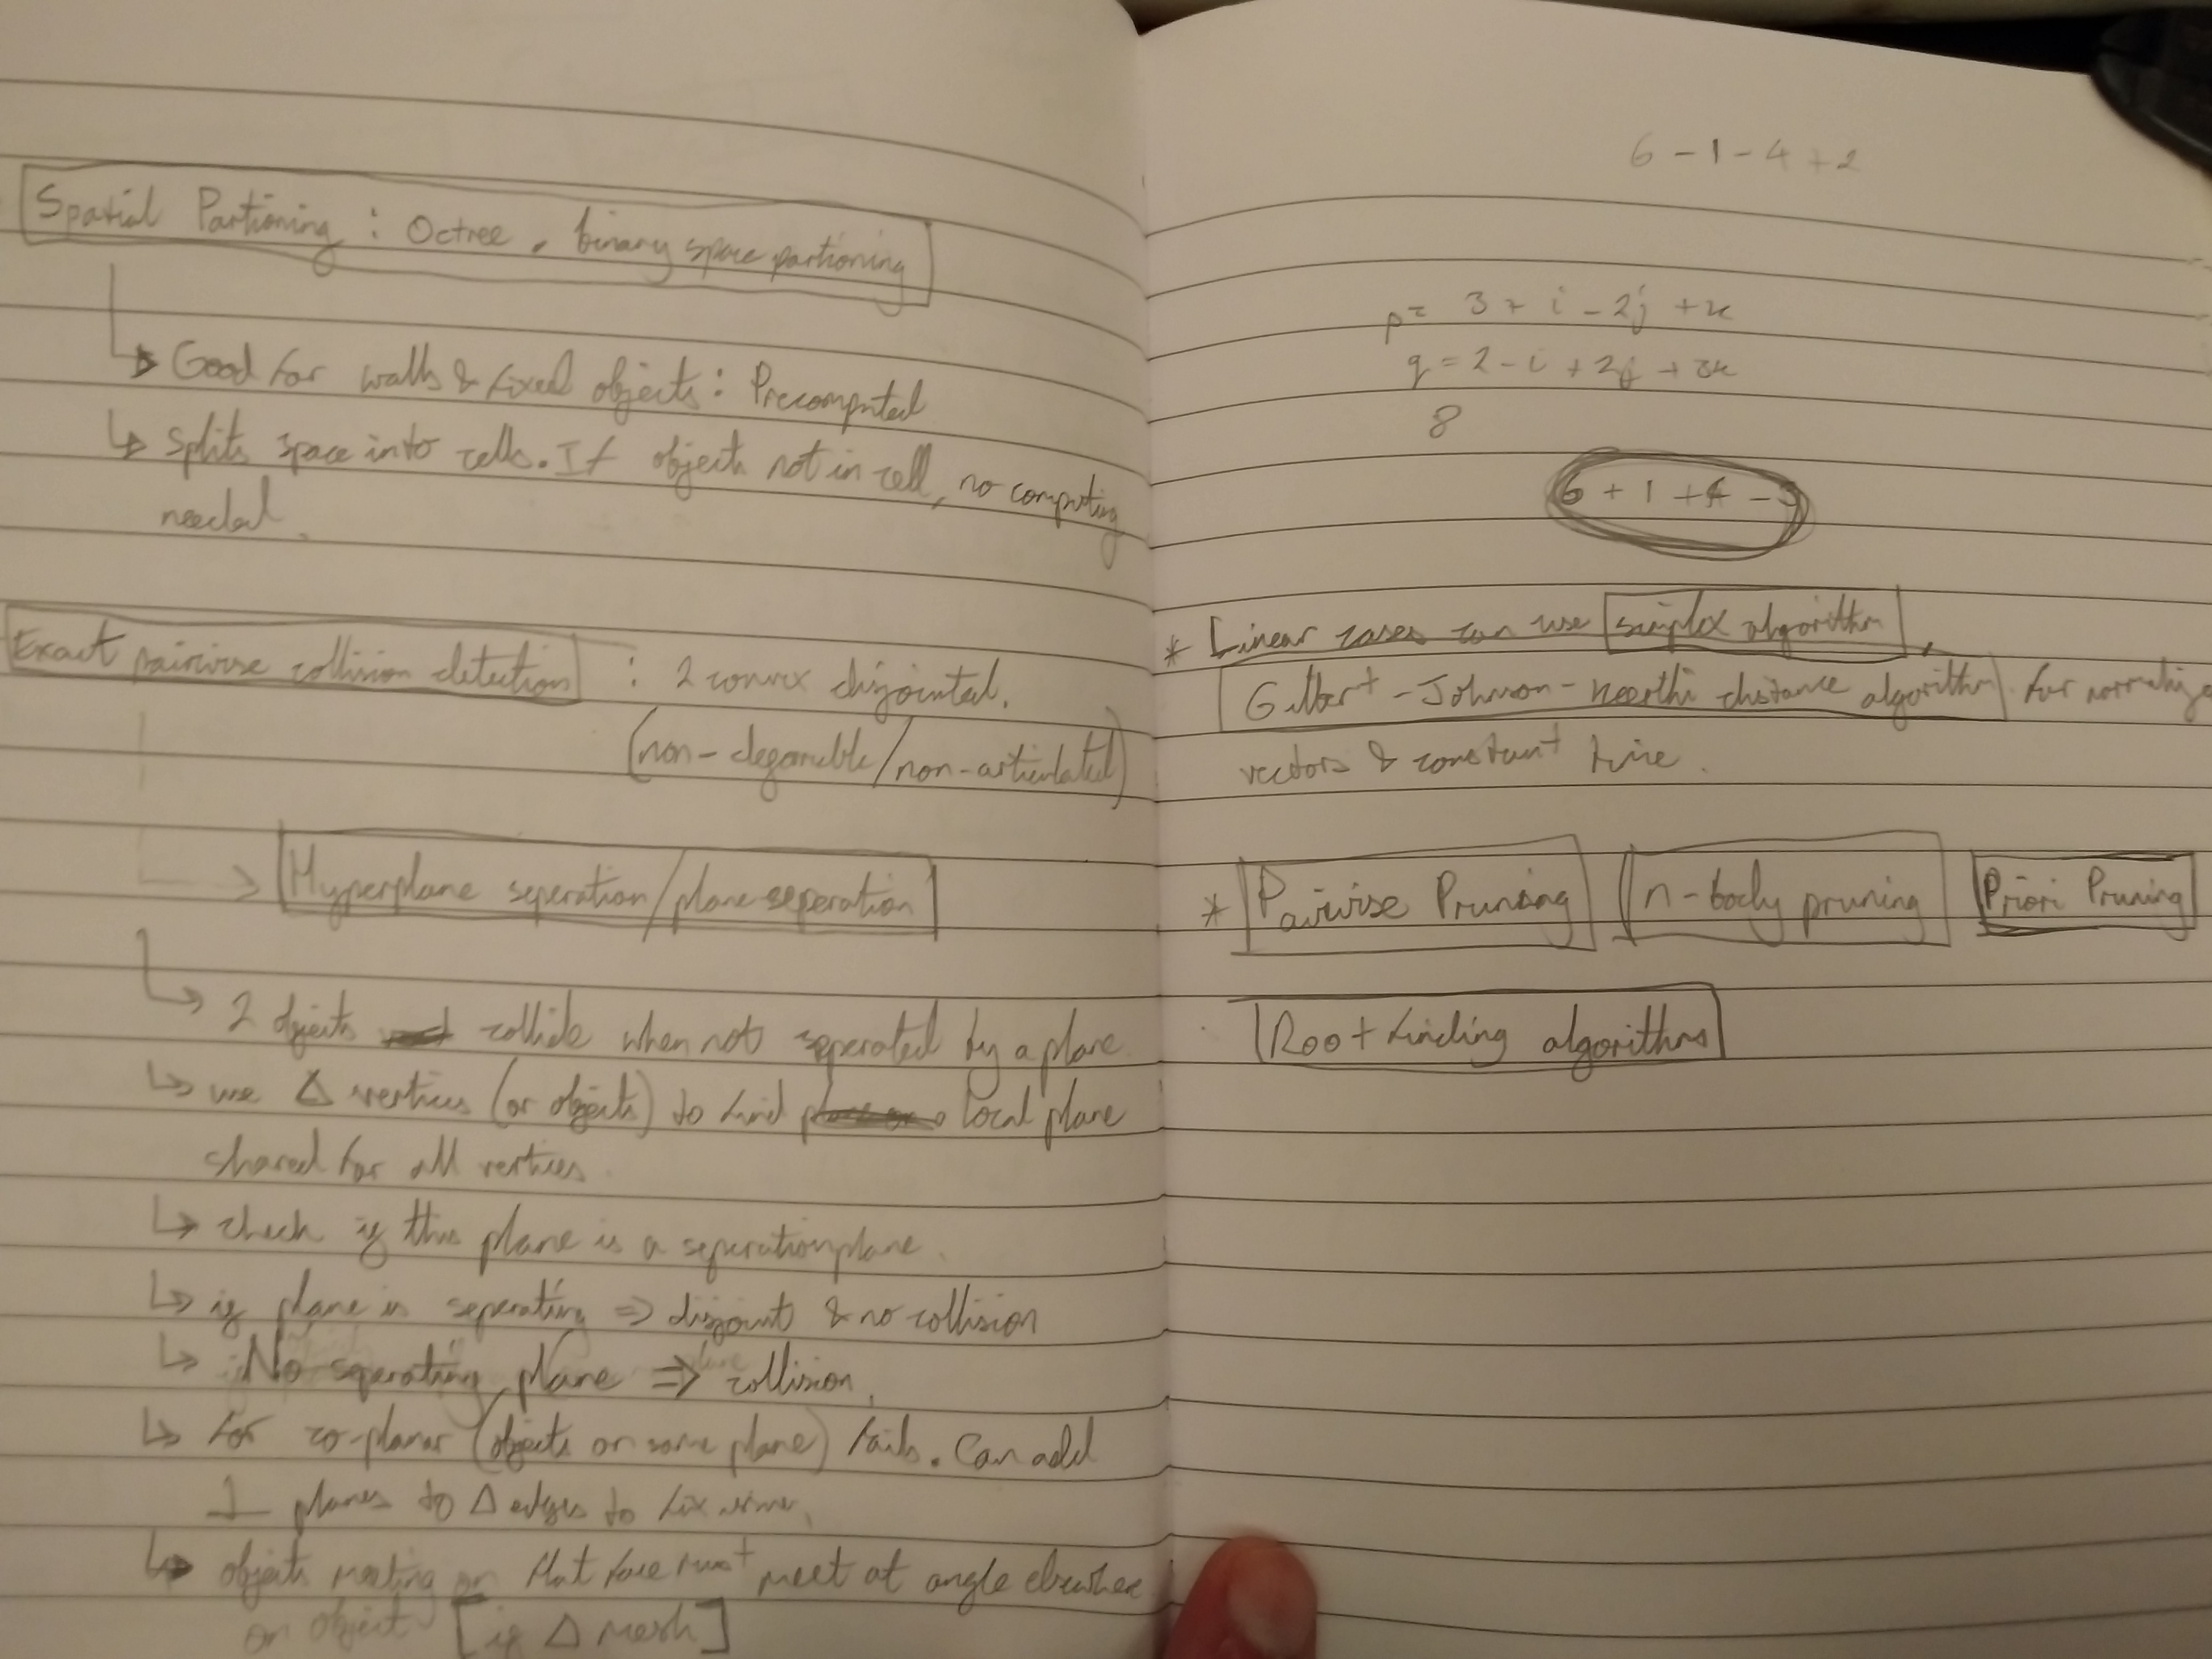 Spatial Partioning : Octree, binary space partioning
Good for walls & fixed objects : Precomputed
splits space into cells. If objects not in cell, no computing
needed.
Exact pairwise collision detection : 2 convex disjointed.
(non-deformable/non-articulated)
Hyperplane seperation/plane seperation
2 objects collide when not seperated by a plane.
use Δ vertices (or objects) to find local plane
shared for all vertices.
check if this plane is a seperation plane.
if plane is seperating => disjoint & no collision
No seperating plane => collision.
for co-planar (objects on same plane) fails. Can add
⊥ planes to Δ edges to fix
objects meeting on flat face must meet at angle elsewhere
on object [if Δ mesh]
6 - 1 - 4 + 2
p = 3 + i - 2j + k
q = 2 - i + 2j + 3k
8
6 + 1 + 4 - 3
* Linear cases can use simplex algorithm,
Gilbert-Johnson-Keerthi distance algorithm for
vectors & constant time.
* Pairwise Pruning n-body pruning Priori Pruning
Root finding algorithms